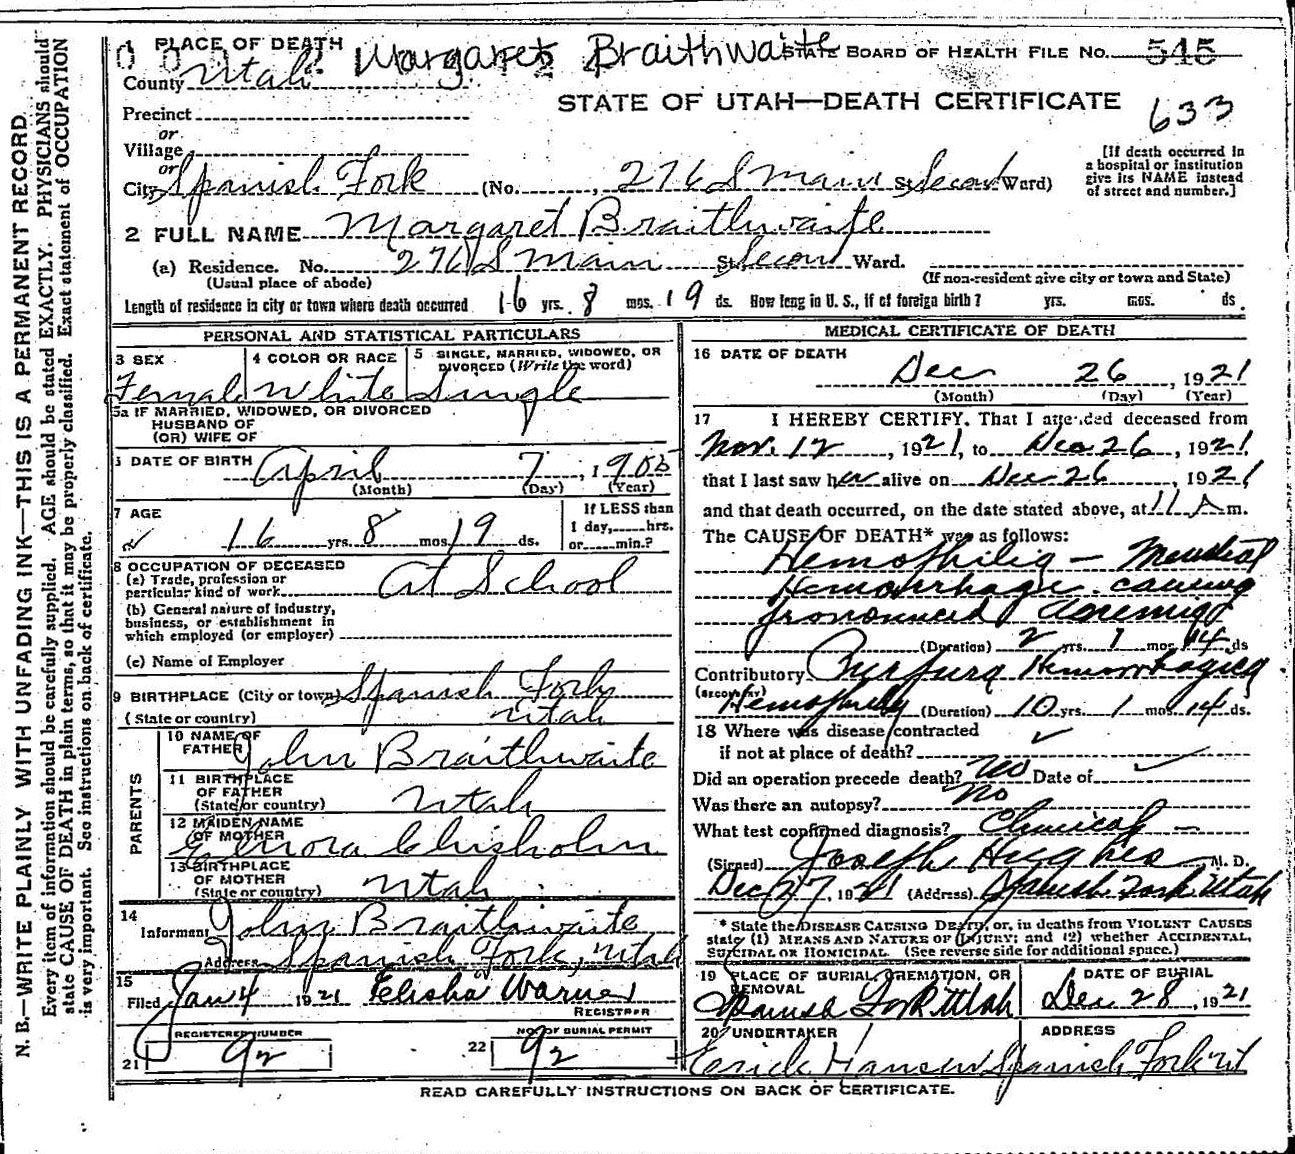 1 PLACE OF DEATH Margaret Braithwaite STATE BOARD OF HEALTH FILE NO. 545
County Utah
STATE OF UTAH—DEATH CERTIFICATE 633
Precinct
or
Village
or
City Spanish Fork (No. , 276 S Main St. Second Ward)
[If death occurred in
a hospital or institution
give its NAME instead
of street and number.]
2 FULL NAME Margaret Braithwaite
(a) Residence. No. 276 S Main St. Second Ward.
(Usual place of abode) (If non-resident give city or town and State)
Length of residence in city or town where death occurred 16 yrs. 8 mos. 19 ds. How long in U. S., if of foreign birth? yrs. mos. ds.
PERSONAL AND STATISTICAL PARTICULARS
3 SEX 4 COLOR OR RACE 5 SINGLE, MARRIED, WIDOWED, OR
DIVORCED (Write the word)
Female White Single
5a IF MARRIED, WIDOWED, OR DIVORCED
HUSBAND OF
(OR) WIFE OF
DATE OF BIRTH April 7, 1905
(Month) (Day) (Year)
7 AGE If LESS than
16 yrs. 8 mos. 19 ds. 1 day, hrs.
or min.?
8 OCCUPATION OF DECEASED
(a) Trade, profession or
particular kind of work At School
(b) General nature of industry,
business, or establishment in
which employed (or employer)
(c) Name of Employer
9 BIRTHPLACE (City or town) Spanish Fork
(State or country) Utah
PARENTS
10 NAME OF
FATHER John Braithwaite
11 BIRTHPLACE
OF FATHER
(State or country) Utah
12 MAIDEN NAME
OF MOTHER Elnora Chisholm
13 BIRTHPLACE
OF MOTHER
(State or country) Utah
14
Informant John Braithwaite
Address Spanish Fork, Utah
15
Filed Jan 4 1921 Elisha Warner
REGISTRAR
REGISTERED NUMBER NO. OF BURIAL PERMIT
21 92 22 92
MEDICAL CERTIFICATE OF DEATH
16 DATE OF DEATH
Dec 26, 1921
(Month) (Day) (Year)
17 I HEREBY CERTIFY, That I attended deceased from
Nov. 12, 1921, to Dec 26, 1921,
that I last saw her alive on Dec 26, 1921
and that death occurred, on the date stated above, at 11 A m.
The CAUSE OF DEATH* was as follows:
Hemophilia — Menstrual
Hemorrhage causing
pronounced Anemia
(Duration) 2 yrs. 1 mos. 14 ds
Contributory Purpura Hemorrhagica
(SECONDARY)
Hemophilia (Duration) 10 yrs. 1 mos. 14 ds.
18 Where was disease contracted
if not at place of death?
Did an operation precede death? No Date of
Was there an autopsy? No
What test confirmed diagnosis? Clinical —
(Signed) Joseph Hughes M. D.
Dec 27, 1921 (Address) Spanish Fork Utah
* State the DISEASE CAUSING DEATH, or, in deaths from VIOLENT CAUSES
state (1) MEANS AND NATURE OF INJURY; and (2) whether ACCIDENTAL,
SUICIDAL OR HOMICIDAL. (See reverse side for additional space.)
19 PLACE OF BURIAL, CREMATION, OR DATE OF BURIAL
REMOVAL
Spanish Fork Utah Dec 28, 1921
20 UNDERTAKER ADDRESS
Erick Hansen Spanish Fork Ut
READ CAREFULLY INSTRUCTIONS ON BACK OF CERTIFICATE.
N. B.—WRITE PLAINLY WITH UNFADING INK—THIS IS A PERMANENT RECORD.
Every item of information should be carefully supplied. AGE should be stated EXACTLY. PHYSICIANS should
state CAUSE OF DEATH in plain terms, so that it may be properly classified. Exact statement of OCCUPATION
is very important. See instructions on back of certificate.